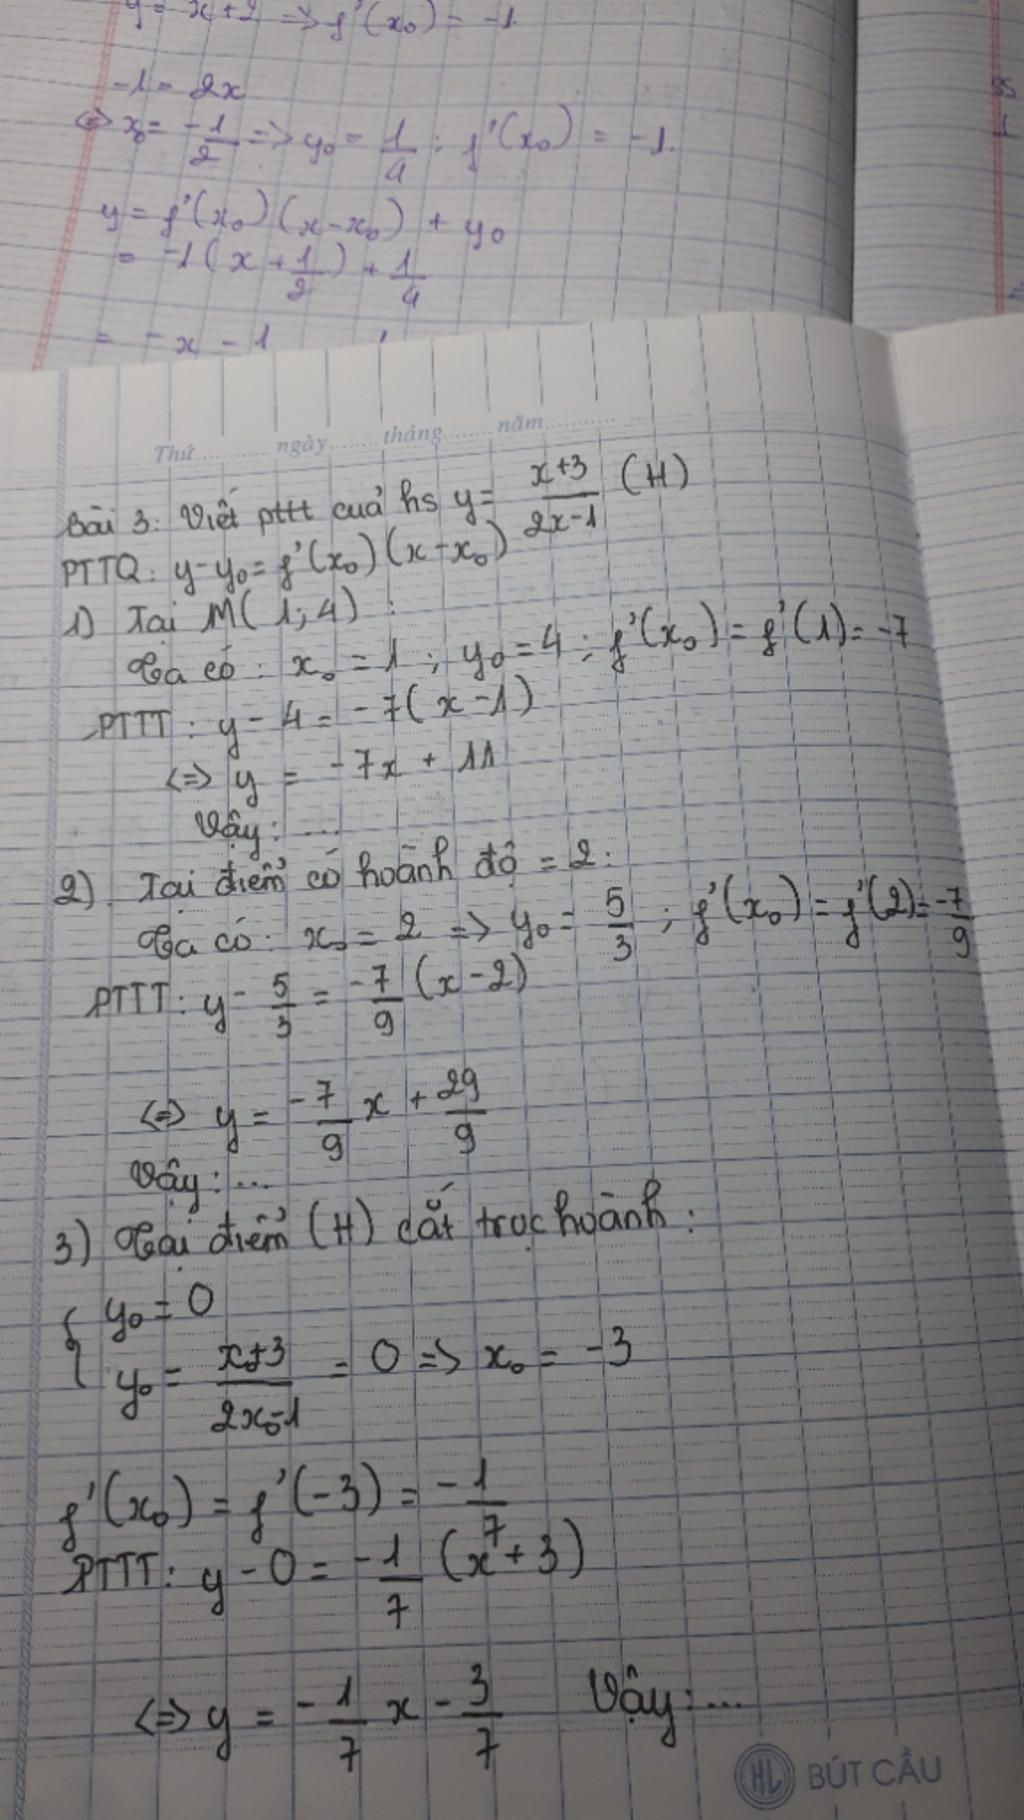 y = x+2 => f'(x₀) = -1
-1 = 2x
<=> x₀ = -1/2 => y₀ = 1/4 ; f'(x₀) = -1.
y = f'(x₀)(x-x₀) + y₀
= -1(x + 1/2) + 1/4
= -x - 1
Thứ.......... ngày....... tháng....... năm..........
Bài 3: Viết pttt cuả hs y = x+3/2x-1 (H)
PTTQ: y-y₀ = f'(x₀)(x-x₀)
1) Tại M(1;4) :
Ta có : x₀ = 1 ; y₀ = 4 ; f'(x₀) = f'(1) = -7
PTTT : y - 4 = -7(x-1)
<=> y = -7x + 11
Vậy: ...
2) Tại điểm có hoành độ = 2 :
Ta có: x₀ = 2 => y₀ = 5/3 ; f'(x₀) = f'(2) = -7/9
PTTT: y - 5/3 = -7/9 (x-2)
<=> y = -7/9 x + 29/9
Vậy: ...
3) Tại điểm (H) cắt trục hoành :
{ y₀ = 0
y₀ = x₀+3/2x₀-1 = 0 => x₀ = -3
f'(x₀) = f'(-3) = -1/7
PTTT: y - 0 = -1/7 (x+3)
<=> y = -1/7 x - 3/7 Vậy: ...
HL BÚT CẦU